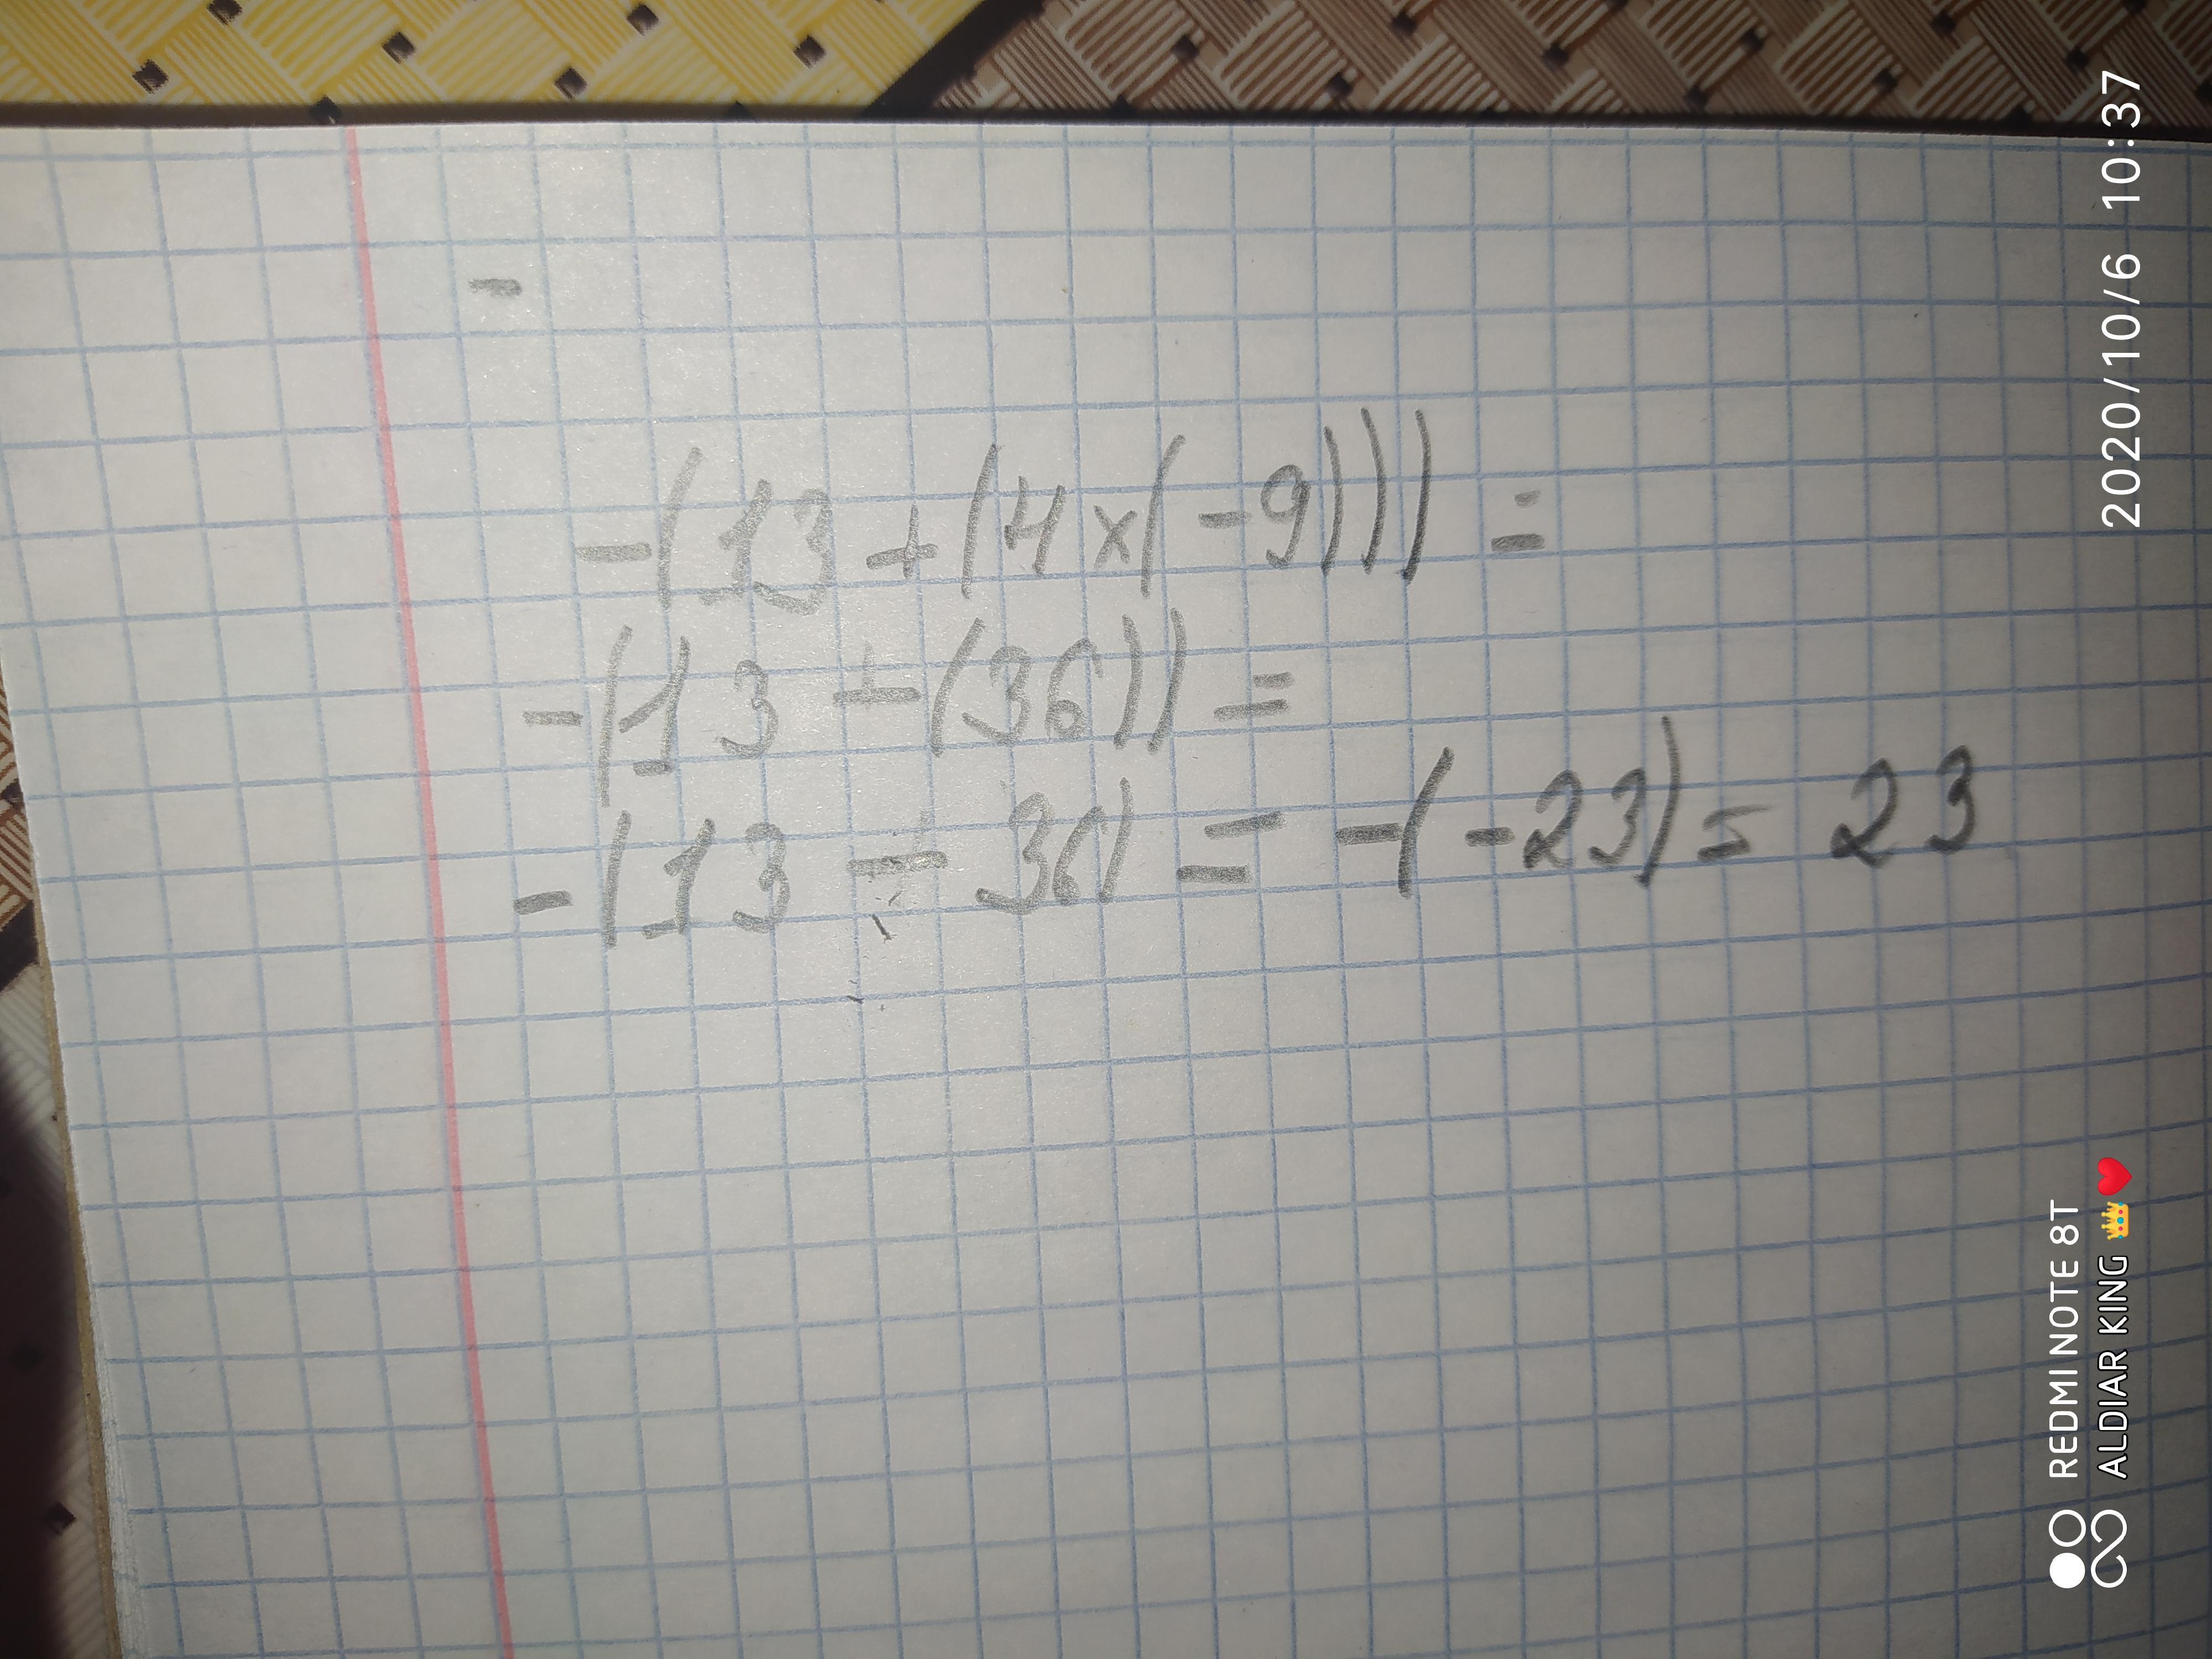 -
-(13+(4x(-9))) =
-(13+(36)) =
-(13-36) = -(-23) = 23
2020/10/6 10:37
REDMI NOTE 8T
ALDIAR KING 👑❤️